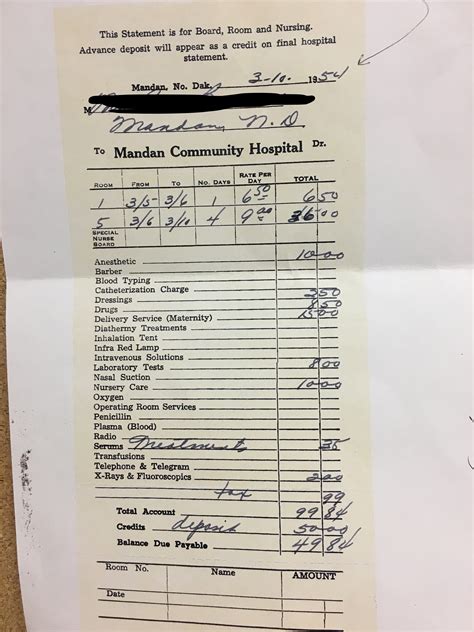 This Statement is for Board, Room and Nursing.
Advance deposit will appear as a credit on final hospital
statement.
Mandan, No. Dak. 3-10. 1954
M
Mandan, N.D
To Mandan Community Hospital Dr.
ROOM FROM TO NO. DAYS RATE PER DAY TOTAL
1 3/5- 3/6 1 6 50 6 50
5 3/6 3/10 4 9 00 36 00
SPECIAL NURSE BOARD
Anesthetic 10 00
Barber
Blood Typing
Catheterization Charge
Dressings 2 50
Drugs 8 50
Delivery Service (Maternity) 15 00
Diathermy Treatments
Inhalation Tent
Infra Red Lamp
Intravenous Solutions
Laboratory Tests 8 00
Nasal Suction
Nursery Care 10 00
Oxygen
Operating Room Services
Penicillin
Plasma (Blood)
Radio
Serums Treatments 35
Transfusions
Telephone & Telegram
X-Rays & Fluoroscopics 2 00
tax 99
Total Account 99 84
Credits deposit 50 00
Balance Due Payable 49 84
Room No. Name AMOUNT
Date